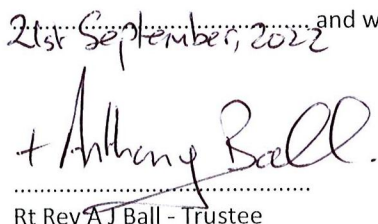 21st September, 2022 and w
+ Anthony Ball.
Rt Rev A J Ball - Trustee